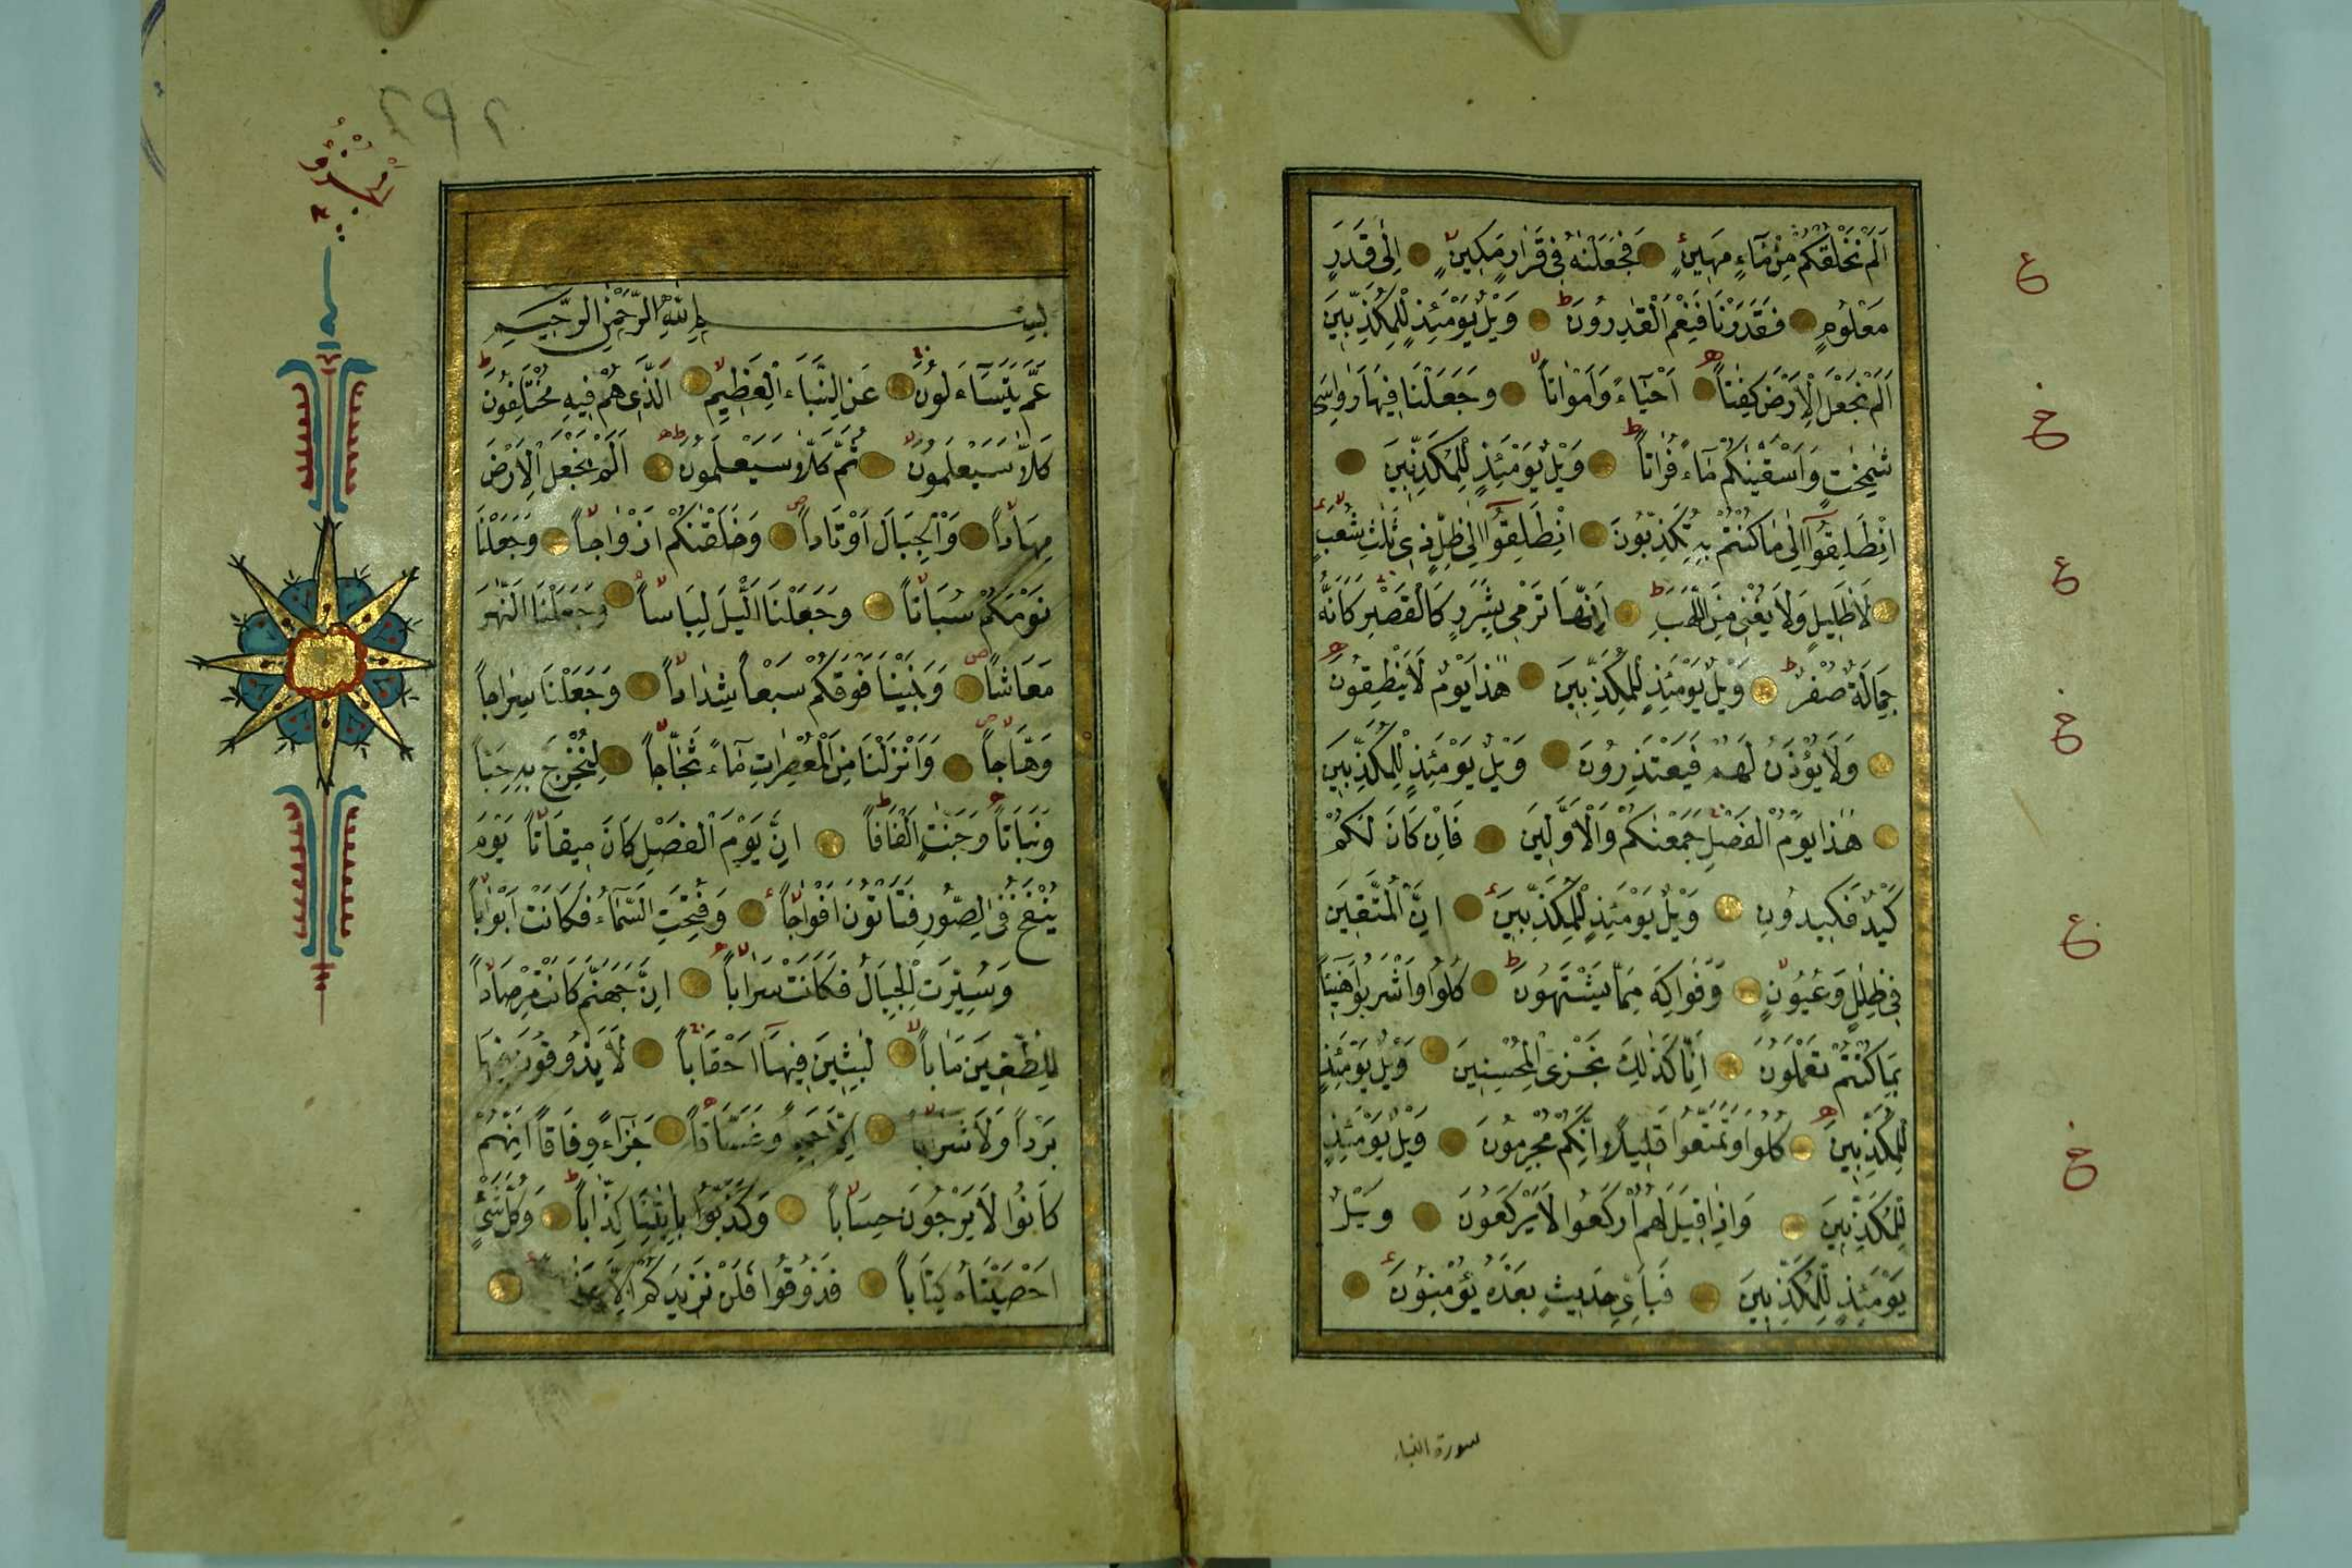 اَلَمْ نَخْلُقْكُمْ مِنْ مَٓاءٍ مَهِينٍ فَجَعَلْنٰهُ فِى قَرَارٍ مَكِينٍ اِلٰى قَدَرٍ
مَعْلُومٍ فَقَدَرْنَا فَنِعْمَ الْقٰدِرُونَ وَيْلٌ يَوْمَئِذٍ لِلْمُكَذِّبِينَ
اَلَمْ نَجْعَلِ الْاَرْضَ كِفَاتاً اَحْيَٓاءً وَاَمْوَاتاً وَجَعَلْنَا فِيهَا رَوَاسِىَ
شٰمِخٰتٍ وَاَسْقَيْنٰكُمْ مَٓاءً فُرَاتاً وَيْلٌ يَوْمَئِذٍ لِلْمُكَذِّبِينَ
اِنْطَلِقُٓوا اِلٰى مَا كُنْتُمْ بِهِ تُكَذِّبُونَ اِنْطَلِقُٓوا اِلٰى ظِلٍّ ذِى ثَلٰثِ شُعَبٍ
لَا ظَلِيلٍ وَلَا يُغْنِى مِنَ اللَّهَبِ اِنَّهَا تَرْمِى بِشَرَرٍ كَالْقَصْرِ كَاَنَّهُ
جِمَالَةٌ صُفْرٌ وَيْلٌ يَوْمَئِذٍ لِلْمُكَذِّبِينَ هٰذَا يَوْمُ لَا يَنْطِقُونَ
وَلَا يُؤْذَنُ لَهُمْ فَيَعْتَذِرُونَ وَيْلٌ يَوْمَئِذٍ لِلْمُكَذِّبِينَ
هٰذَا يَوْمُ الْفَصْلِ جَمَعْنٰكُمْ وَالْاَوَّلِينَ فَاِنْ كَانَ لَكُمْ
كَيْدٌ فَكِيدُونِ وَيْلٌ يَوْمَئِذٍ لِلْمُكَذِّبِينَ اِنَّ الْمُتَّقِينَ
فِى ظِلٰلٍ وَعُيُونٍ وَفَوَاكِهَ مِمَّا يَشْتَهُونَ كُلُوا وَاشْرَبُوا هَنِٓيئاً
بِمَا كُنْتُمْ تَعْمَلُونَ اِنَّا كَذٰلِكَ نَجْزِى الْمُحْسِنِينَ وَيْلٌ يَوْمَئِذٍ
لِلْمُكَذِّبِينَ كُلُوا وَتَمَتَّعُوا قَلِيلاً اِنَّكُمْ مُجْرِمُونَ وَيْلٌ يَوْمَئِذٍ
لِلْمُكَذِّبِينَ وَاِذَا قِيلَ لَهُمُ ارْكَعُوا لَا يَرْكَعُونَ وَيْلٌ
يَوْمَئِذٍ لِلْمُكَذِّبِينَ فَبِاَىِّ حَدِيثٍ بَعْدَهُ يُؤْمِنُونَ
سورة النباء
بِسْمِ اللّٰهِ الرَّحْمٰنِ الرَّحِيمِ
عَمَّ يَتَسَٓاءَلُونَ عَنِ النَّبَاءِ الْعَظِيمِ اَلَّذِى هُمْ فِيهِ مُخْتَلِفُونَ
كَلَّا سَيَعْلَمُونَ ثُمَّ كَلَّا سَيَعْلَمُونَ اَلَمْ نَجْعَلِ الْاَرْضَ
مِهَاداً وَالْجِبَالَ اَوْتَاداً وَخَلَقْنٰكُمْ اَزْوَاجاً وَجَعَلْنَا
نَوْمَكُمْ سُبَاتاً وَجَعَلْنَا الَّيْلَ لِبَاساً وَجَعَلْنَا النَّهَارَ
مَعَاشاً وَبَنَيْنَا فَوْقَكُمْ سَبْعاً شِدَاداً وَجَعَلْنَا سِرَاجاً
وَهَّاجاً وَاَنْزَلْنَا مِنَ الْمُعْصِرَاتِ مَٓاءً ثَجَّاجاً لِنُخْرِجَ بِهِ حَبّاً
وَنَبَاتاً وَجَنّٰتٍ اَلْفَافاً اِنَّ يَوْمَ الْفَصْلِ كَانَ مِيقَاتاً يَوْمَ
يُنْفَخُ فِى الصُّورِ فَتَأْتُونَ اَفْوَاجاً وَفُتِحَتِ السَّمَٓاءُ فَكَانَتْ اَبْوَاباً
وَسُيِّرَتِ الْجِبَالُ فَكَانَتْ سَرَاباً اِنَّ جَهَنَّمَ كَانَتْ مِرْصَاداً
لِلطّٰغِينَ مَاٰباً لٰبِثِينَ فِيهَٓا اَحْقَاباً لَا يَذُوقُونَ فِيهَا
بَرْداً وَلَا شَرَاباً اِلَّا حَمِيماً وَغَسَّاقاً جَزَٓاءً وِفَاقاً اِنَّهُمْ
كَانُوا لَا يَرْجُونَ حِسَاباً وَكَذَّبُوا بِاٰيٰتِنَا كِذَّاباً وَكُلَّ شَىْءٍ
اَحْصَيْنَاهُ كِتَاباً فَذُوقُوا فَلَنْ نَزِيدَكُمْ اِلَّا